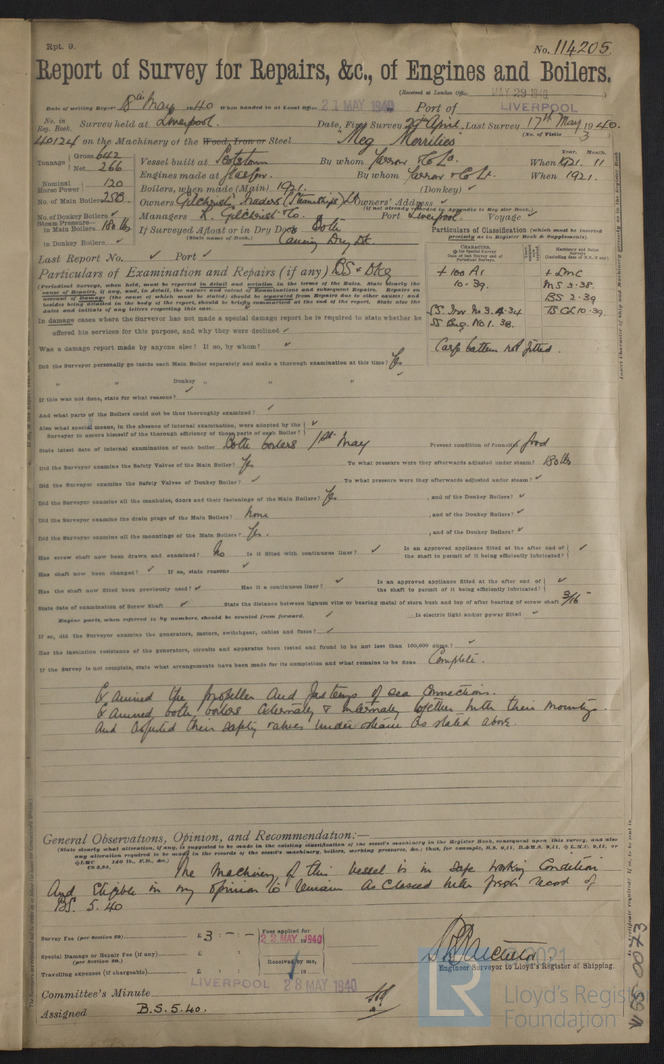 Rpt. 9.
No. 114205
Report of Survey for Repairs, &c., of Engines and Boilers.
(Received at London Office MAY 29 1940)
Date of writing Report 18th May 1940 When handed in at Local Office 21 MAY 1940 Port of LIVERPOOL
No. in Reg. Book. Survey held at Liverpool. Date, First Survey 29th April, Last Survey 17th May 1940.
(No. of Visits 3)
40124 on the Machinery of the Wood, Iron or Steel "Meg Merrilies"
Tonnage Gross 642 Net 266
Vessel built at Scotstoun By whom Yarrow & Co Ld. When 1921. 11
Year. Month.
Nominal Horse Power 120
Engines made at Glasgow. By whom Yarrow & Co Ld. When 1921.
Boilers, when made (Main) 1921. (Donkey) ✓
No. of Main Boilers 2SB.
Owners Gilchrist Traders (Steamships) Ld Owners' Address ✓
(if not already recorded in Appendix to Register Book.)
No. of Donkey Boilers ✓
Managers K. Gilchrist & Co. Port Liverpool. Voyage ✓
Steam Pressure in Main Boilers 180 lbs
If Surveyed Afloat or in Dry Dock Both
(State name of Dock.) Canning Dry Dk.
in Donkey Boilers ✓
Particulars of Classification (which must be inserted precisely as in Register Book & Supplements).
Last Report No. ✓ Port ✓
Particulars of Examination and Repairs (if any) BS & Dkg
+ 100 A1 + LMC
10.39. MS 3.38.
BS 2.39
SS. Liv. No 3. 4.34 TS CL 10.39.
SS Eng. No 1. 38.
Cargo battens not fitted.
In damage cases where the Surveyor has not made a special damage report he is required to state whether he
offered his services for this purpose, and why they were declined ✓
Was a damage report made by anyone else? If so, by whom? ✓
Did the Surveyor personally go inside each Main Boiler separately and make a thorough examination at this time? Yes
„ „ Donkey „ „ „ ✓
If this was not done, state for what reasons? ✓
And what parts of the Boilers could not be thus thoroughly examined? ✓
Also what special means, in the absence of internal examination, were adopted by the Surveyor to assure himself of the thorough efficiency of those parts of each Boiler? ✓
State latest date of internal examination of each boiler Both boilers 1st May Present condition of funnel(s) Good
Did the Surveyor examine the Safety Valves of the Main Boiler? Yes To what pressure were they afterwards adjusted under steam? 180 lbs
Did the Surveyor examine the Safety Valves of Donkey Boiler? ✓ To what pressure were they afterwards adjusted under steam? ✓
Did the Surveyor examine all the manholes, doors and their fastenings of the Main Boilers? Yes, and of the Donkey Boilers? ✓
Did the Surveyor examine the drain plugs of the Main Boilers? None, and of the Donkey Boilers? ✓
Did the Surveyor examine all the mountings of the Main Boilers? Yes., and of the Donkey Boilers? ✓
Has screw shaft now been drawn and examined? No Is it fitted with continuous liner? ✓ Is an approved appliance fitted at the after end of the shaft to permit of it being efficiently lubricated? ✓
Has shaft now been changed? ✓ If so, state reasons ✓
Has the shaft now fitted been previously used? ✓ Has it a continuous liner? ✓ Is an approved appliance fitted at the after end of the shaft to permit of it being efficiently lubricated? ✓
State date of examination of Screw Shaft ✓ State the distance between lignum vitæ or bearing metal of stern bush and top of after bearing of screw shaft 3/16"
Engine parts, when referred to by numbers, should be counted from forward. ✓ Is electric light and/or power fitted ✓
If so, did the Surveyor examine the generators, motors, switchgear, cables and fuses? ✓
Has the insulation resistance of the generators, circuits and apparatus been tested and found to be not less than 100,000 ohms? ✓
If the Survey is not complete, state what arrangements have been made for its completion and what remains to be done Complete.
Examined the propeller and fastenings of sea connections.
Examined both boilers externally & internally together with their mountings.
And adjusted their safety valves under steam as stated above.
General Observations, Opinion, and Recommendation:—
The Machinery of this vessel is in safe working condition
And Eligible in my opinion to remain as Classed with fresh record of
BS. 5.40
Survey Fee (per Section 29) £ 3 - - Fees applied for 22 MAY 1940
Special Damage or Repair Fee (if any) £ : : (per Section 29.) Received by me,
Travelling expenses (if chargeable) £ : : 19
Engineer Surveyor to Lloyd's Register of Shipping.
LIVERPOOL 28 MAY 1940
Committee's Minute
Assigned B.S. 5.40.
W55-0073
2021
LR
Lloyd's Register
Foundation